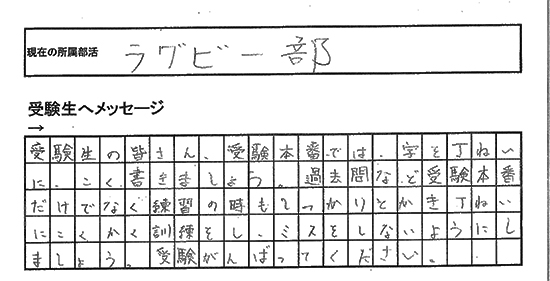 現在の所属部活 ラグビー部
受験生へメッセージ
→
受験生の皆さん、受験本番では、字を丁ねい
に、こく書きましょう。過去問など受験本番
だけでなく練習の時もしっかりとかき丁ねい
にこくかく訓練をし、ミスをしないようにし
ましょう。受験がんばってください。